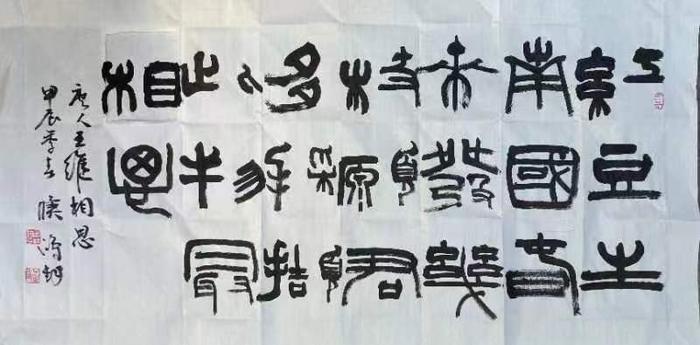 紅豆生
南國春
來發幾
枝願君
多採擷
此物最
相思
唐人王維相思
甲辰季春